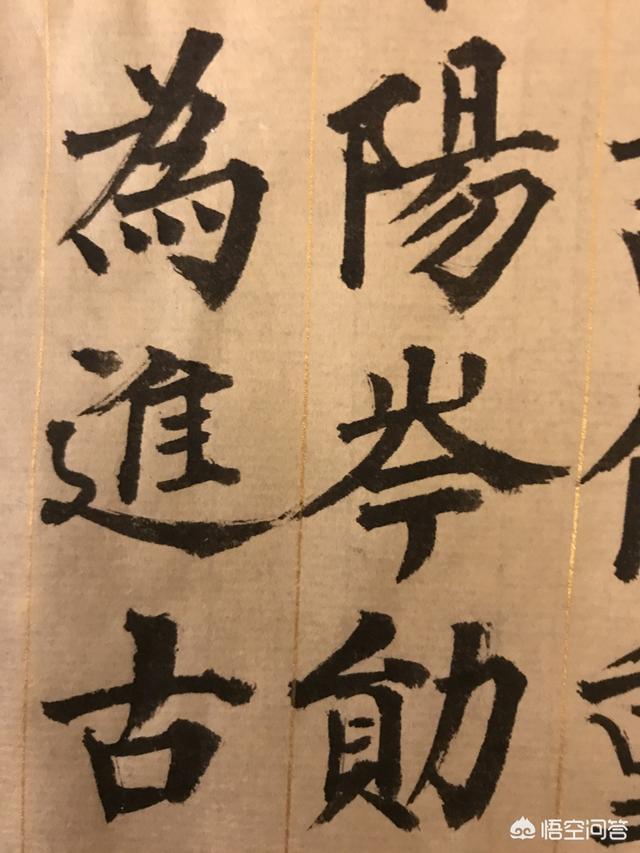 陽岑勛
為進古
悟空问答